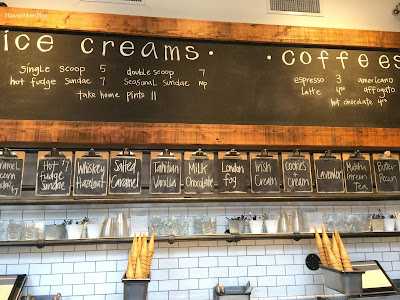 HawaiiMomBlog
ice creams • coffees
single scoop 5 double scoop 7 espresso 3 americano
hot fudge sundae 7 seasonal sundae mp latte 4⁵⁰ affogato
take home pints 11 hot chocolate 4⁵⁰
Hot 7 fudge sundae
Whiskey Hazelnut
Salted Caramel
Tahitian Vanilla
Milk Chocolate
London fog
Irish Cream
cookies + cream
Lavender
Green Tea
Butter